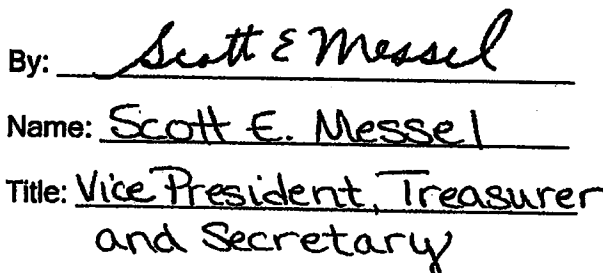 By: Scott E Messel
Name: Scott E. Messel
Title: Vice President, Treasurer
and Secretary